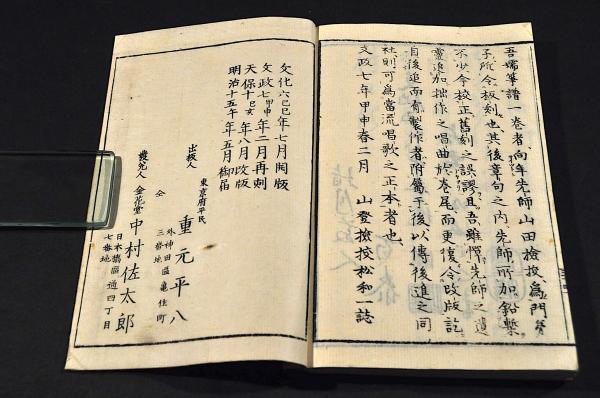 吾嬬箏譜一巻者、向年先師山田撿挍、為門弟
子所令板刻也、其後章句之内、先師所加鉛槧
不少、今校正舊刻之誤謬、且吾雖憚先師之遺
靈追加拙作之唱曲於巻尾、而更復令改版訖
自後追而有製作者附屬于後以傳後進之同
社則可為當流唱歌之正本者也
文政七年甲申春二月 山登撿挍松和一誌
文化六己巳年七月開版
文政七甲申年二月再刻
天保十己亥年八月改版
明治十五年五月御届
東京府平民
出版人 重元平八
外神田區亀住町
三番地
仝
發兌人 金花堂 中村佐太郎
日本橋區通四丁目
七番地